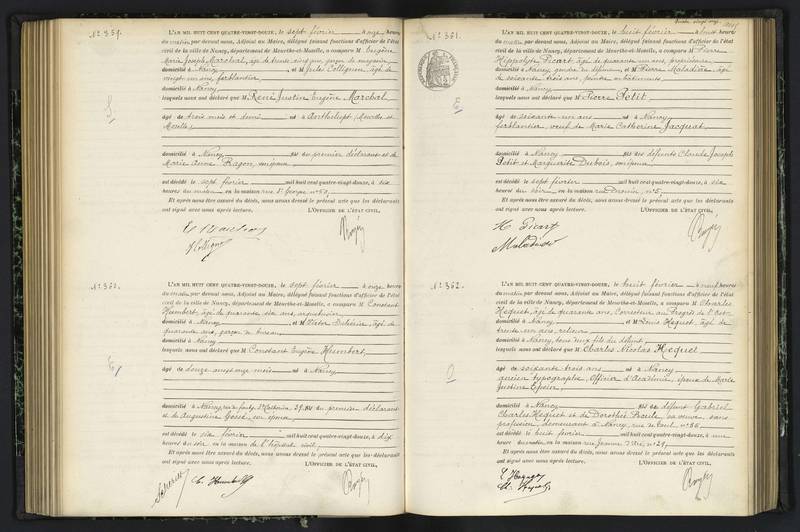 N° 359.
L'AN MIL HUIT CENT QUATRE-VINGT-DOUZE, le sept février à onze heures
du matin, par devant nous, Adjoint au Maire, délégué faisant fonctions d'officier de l'état
civil de la ville de Nancy, département de Meurthe-et-Moselle, a comparu M Eugène
Marie Joseph Marchal, âgé de trente cinq ans, garçon de magasin,
domicilié à Nancy, et M Jules Collignon, âgé de
vingt-six ans, ferblantier,
domicilié à Nancy
lesquels nous ont déclaré que M René Justin Eugène Marchal
âgé de trois mois et demi né à (Meurthe et
Moselle)
domicilié à Nancy fils du premier déclarant et de
Marie Anne Ragon, son épouse
est décédé le sept février mil huit cent quatre-vingt-douze, à six
heures du matin en la maison rue St Georges n° 50,
Et après nous être assuré du décès, nous avons dressé le présent acte que les déclarants
ont signé avec nous après lecture. L'OFFICIER DE L'ÉTAT CIVIL,
N° 360.
L'AN MIL HUIT CENT QUATRE-VINGT-DOUZE, le sept février à onze heures
du matin, par devant nous, Adjoint au Maire, délégué faisant fonctions d'officier de l'état
civil de la ville de Nancy, département de Meurthe-et-Moselle, a comparu M Constant
Humbert, âgé de quarante six ans,
domicilié à Nancy, et M Victor âgé de
quarante ans, garçon de bureau
domicilié à Nancy
lesquels nous ont déclaré que M Constant Eugène Humbert,
âgé de douze ans, onze mois né à Nancy
domicilié à Nancy, rue du faubg. Ste Catherine, 39, fils du premier déclarant
et de Augustine son épouse
est décédé le six février mil huit cent quatre-vingt-douze, à dix
heures du soir en la maison de l'hôpital civil,
Et après nous être assuré du décès, nous avons dressé le présent acte que les déclarants
ont signé avec nous après lecture. L'OFFICIER DE L'ÉTAT CIVIL,
C. Humbert
N° 361.
L'AN MIL HUIT CENT QUATRE-VINGT-DOUZE, le huit février à huit heures
du matin, par devant nous, Adjoint au Maire, délégué faisant fonctions d'officier de l'état
civil de la ville de Nancy, département de Meurthe-et-Moselle, a comparu M Pierre
Hippolyte Picart, âgé de quarante un ans, propriétaire
domicilié à Nancy, gendre du défunt, et M Pierre âgé
de soixante trois ans, peintre en bâtiments,
domicilié à Nancy
lesquels nous ont déclaré que M Pierre Petit,
âgé de soixante un ans né à Nancy
ferblantier, veuf de Marie Catherine Jacquat
domicilié à Nancy fils des défunts Claude Joseph
Petit et Marguerite Dubois, son épouse
est décédé le sept février mil huit cent quatre-vingt-douze, à six
heures du soir en la maison rue n° 5,
Et après nous être assuré du décès, nous avons dressé le présent acte que les déclarants
ont signé avec nous après lecture. L'OFFICIER DE L'ÉTAT CIVIL,
H. Picart
N° 362.
L'AN MIL HUIT CENT QUATRE-VINGT-DOUZE, le huit février à neuf heures
du matin, par devant nous, Adjoint au Maire, délégué faisant fonctions d'officier de l'état
civil de la ville de Nancy, département de Meurthe-et-Moselle, a comparu M Charles
Hequet, âgé de quarante ans, Correcteur au Progrès de l'Est
domicilié à Nancy, et M Louis Hequet, âgé de
trente un ans, relieur
domicilié à Nancy, tous deux fils du défunt,
lesquels nous ont déclaré que M Charles Nicolas Hequet
âgé de soixante trois ans né à Nancy
ancien typographe, Officier d'Académie, époux de Marie
Justine
domicilié à Nancy fils de défunt Gabriel
Charles Hequet et de Dorothée sa veuve, sans
profession, demeurant à Nancy, rue de Toul n° 56,
est décédé le huit février mil huit cent quatre-vingt-douze, à une
heure du matin, en la maison rue Jeanne d'Arc, n° 29,
Et après nous être assuré du décès, nous avons dressé le présent acte que les déclarants
ont signé avec nous après lecture. L'OFFICIER DE L'ÉTAT CIVIL,